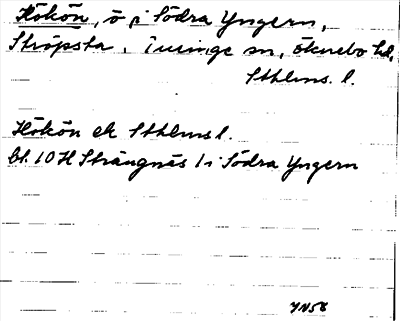 Hökön, ö i Södra Yngern,
Ströpsta, Turinge sn, Öknebo hd,
Sthlms. l.
Hökön ek Sthlms l.
bl. 10 H Strängnäs 1 i Södra Yngern
YN56